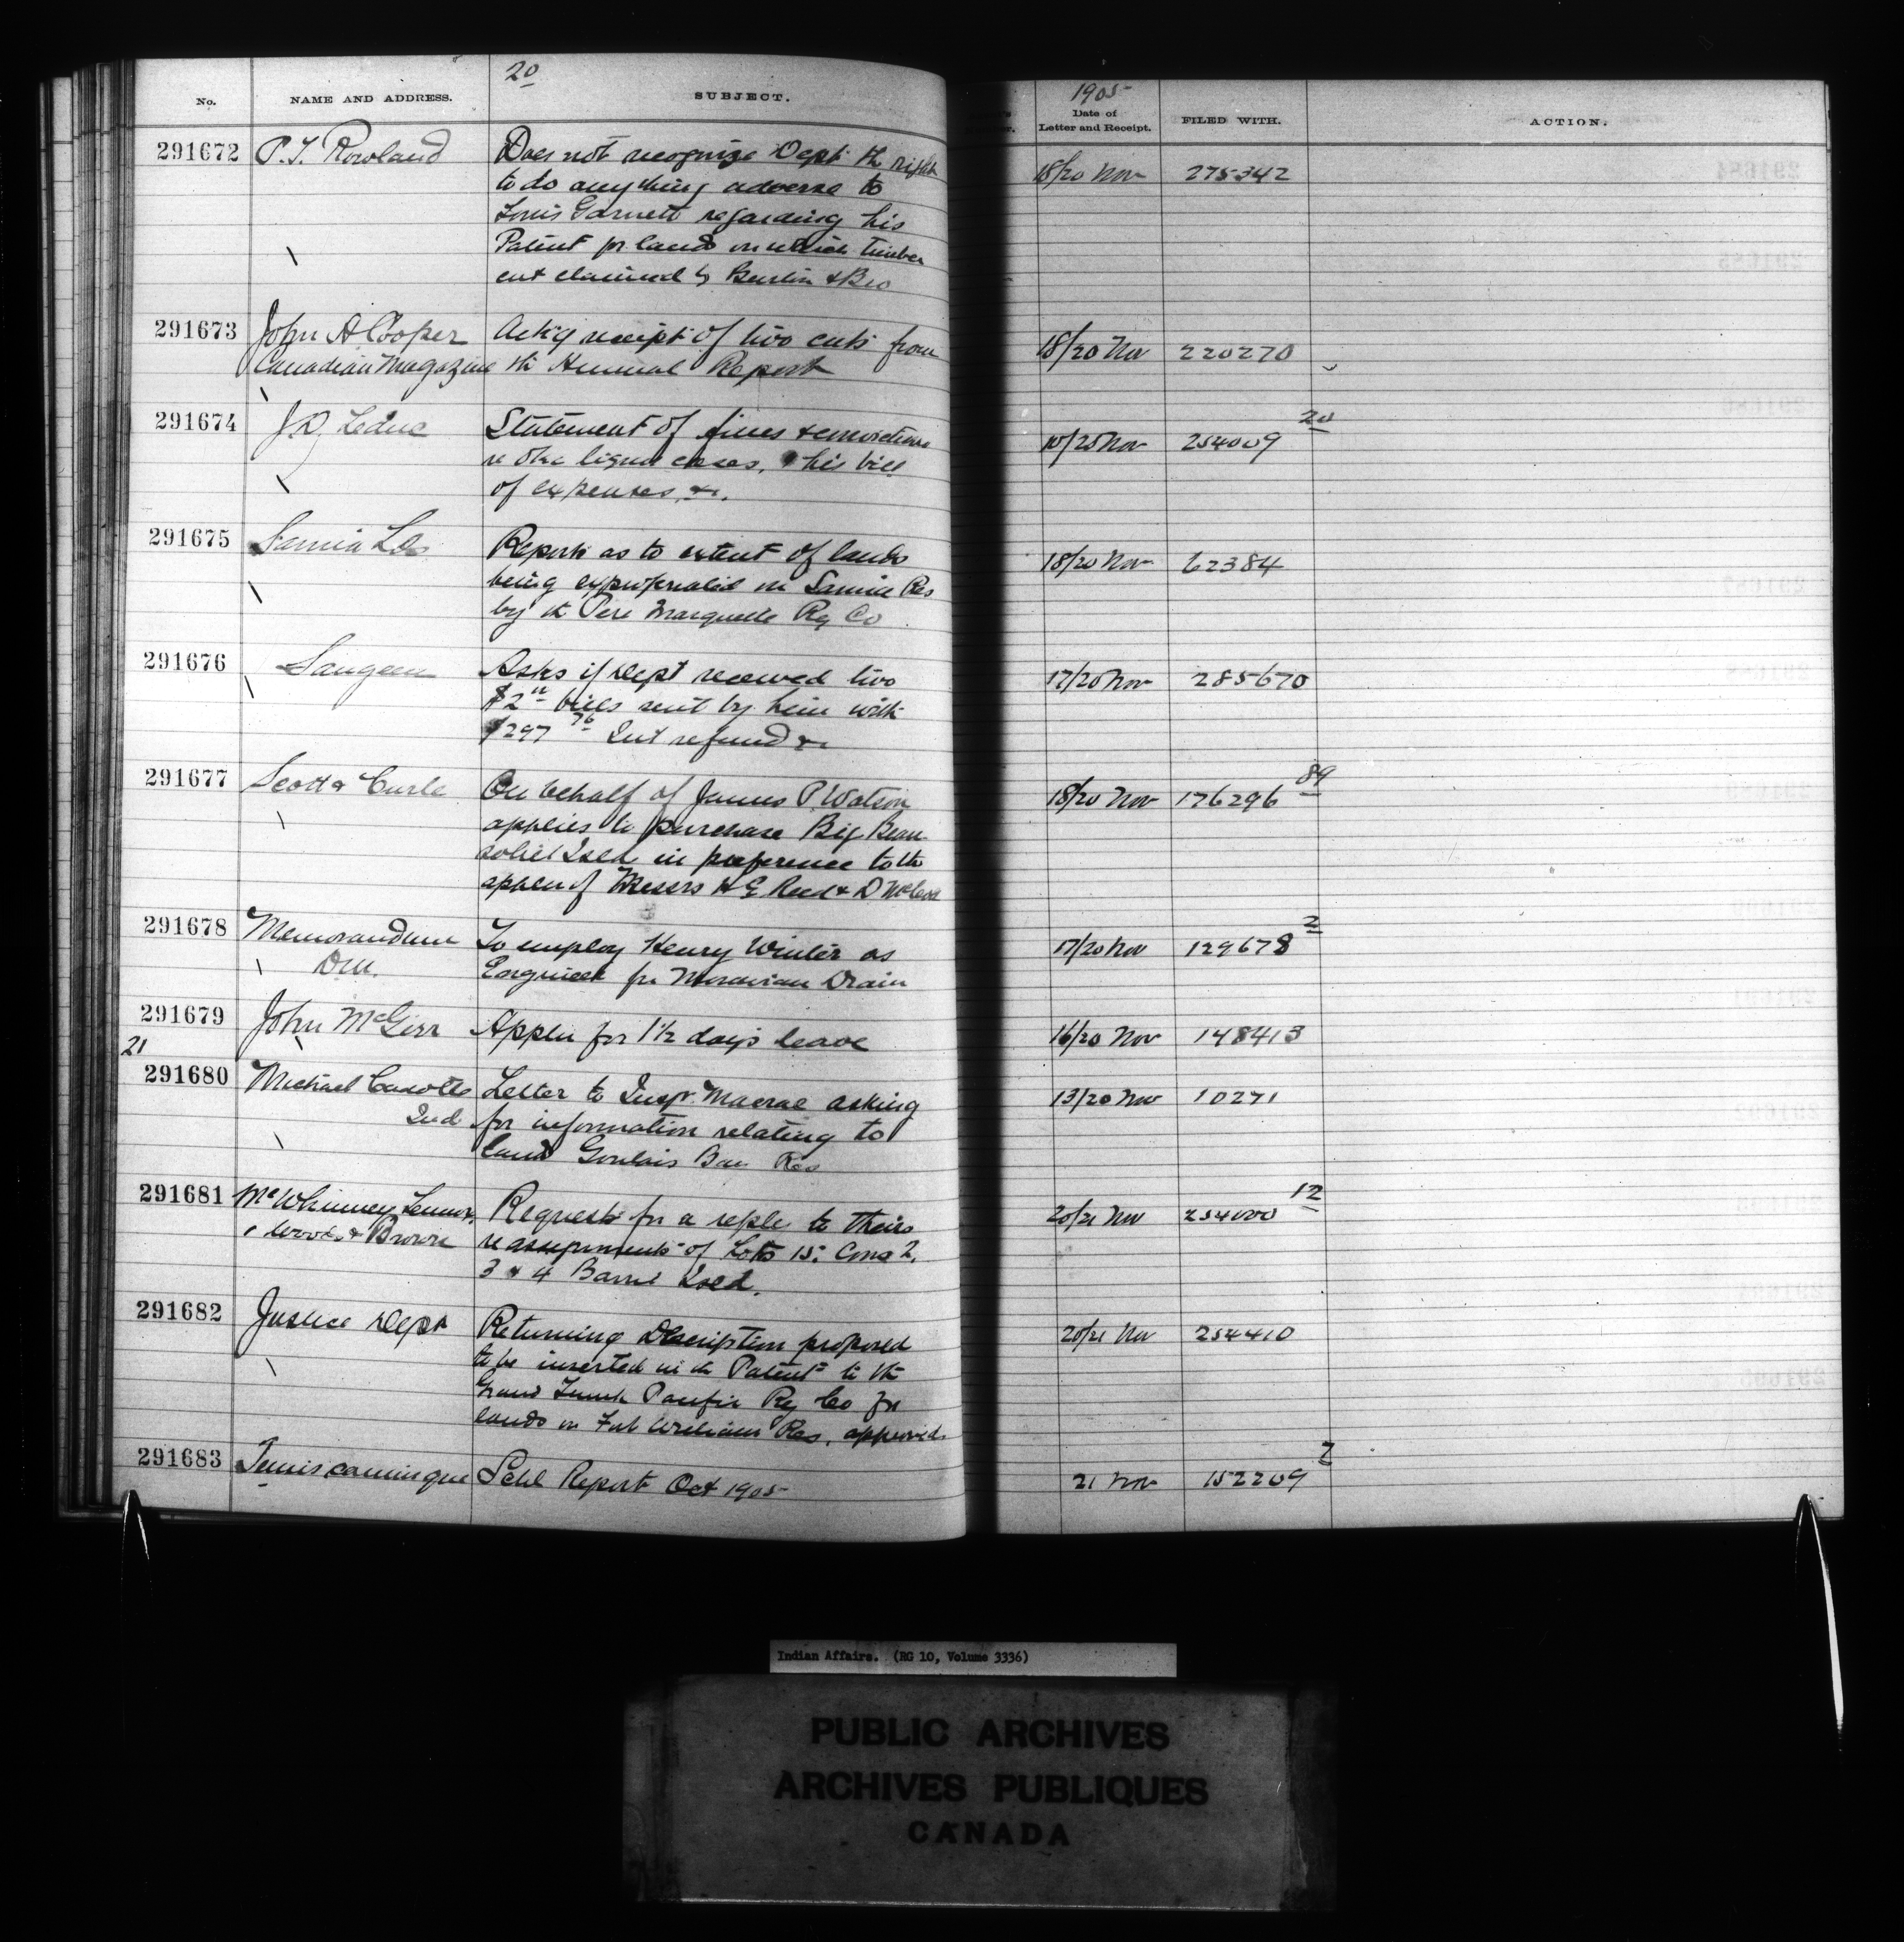 20
No. NAME AND ADDRESS. SUBJECT.
1905
Date of Letter and Receipt. FILED WITH. ACTION.
291672 P. T. Rowland Does not recognize Dept th right
to do anything adverse to
Louis Garnett regarding his
Patent for land on which timber
cut claimed by & Bro
18/20 Nov 275342
291673 John A Cooper Ackg receipt of two cuts from
Canadian Magazine th Annual Report
18/20 Nov 220270
291674 J. D. Leduc Statement of fines & convictions
re Oka liquor cases, his bill
of expenses, &c.
10/20 Nov 254009 20
291675 Sarnia Reports as to extent of lands
being expropriated in Sarnia Res
by th Pere Marquette Ry Co
18/20 Nov 62384
291676 Saugeen Asks if Dept received two
$2 bills sent by him with
$297 76 Int refund &c
17/20 Nov 285670
291677 Scott & Curle On behalf of James P. Watson
applies to purchase Big Beau-
soliel Isld in preference to the
applcn of Messrs H E Reed & D
18/20 Nov 176296 89
291678 Memorandum To employ Henry Winter as
DM. Engineer for Moravian Drain
17/20 Nov 129678 2
291679 John McGirr Applcn for 1½ days leave
16/20 Nov 148413
21
291680 Michael Cadotte Letter to Inspr. Macrae asking
Ind for information relating to
land Goulais Bay Res
13/20 Nov 10271
291681 McWhinney, Lennox, Requests for a reply to theirs
Woods & Brown re assignments of Lots 15: Cons 2,
3 & 4 Barrie Isld.
20/21 Nov 254000 12
291682 Justice Dept Returning Description proposed
to be inserted in th Patent to th
Grand Trunk Pacific Ry Co for
lands in Fort William Res, approved
20/21 Nov 254410
291683 Temiscamingue Schl Report Oct 1905
21 Nov 152209 7
Indian Affairs. (RG 10, Volume 3336)
PUBLIC ARCHIVES
ARCHIVES PUBLIQUES
CANADA